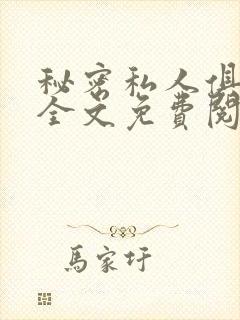 秘密私人俱
全文免費閱
馬家圩